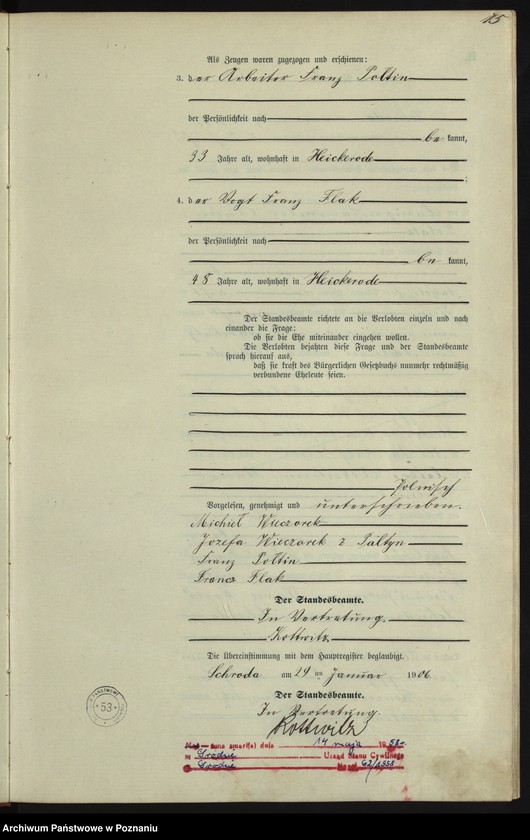 15
Als Zeugen waren zugezogen und erschienen:
3. der Arbeiter Franz Poltin
der Persönlichkeit nach
bekannt,
33 Jahre alt, wohnhaft in Heickerode
;
4. der Vogt Franz Flak
der Persönlichkeit nach
bekannt,
48 Jahre alt, wohnhaft in Heickerode
Der Standesbeamte richtete an die Verlobten einzeln und nach
einander die Frage:
ob sie die Ehe miteinander eingehen wollen.
Die Verlobten bejahten diese Frage und der Standesbeamte
sprach hierauf aus,
daß sie kraft des Bürgerlichen Gesetzbuchs nunmehr rechtmäßig
verbundene Eheleute seien.
Polnisch
Vorgelesen, genehmigt und unterschrieben.
Michiel Wieczorek
Jozefa Wieczorek z Paltyn
Franz Poltin
Francz Flak
Der Standesbeamte.
In Vertretung.
Kottwitz.
Die Übereinstimmung mit dem Hauptregister beglaubigt.
Schroda am 29ten Januar 1906.
Der Standesbeamte.
In Vertretung.
Kottwitz
zmarł(a) dnia 14 maja 1958
w Środzie Urząd Stanu Cywilnego
Środzie 62/1958
53
Archiwum Państwowe w Poznaniu